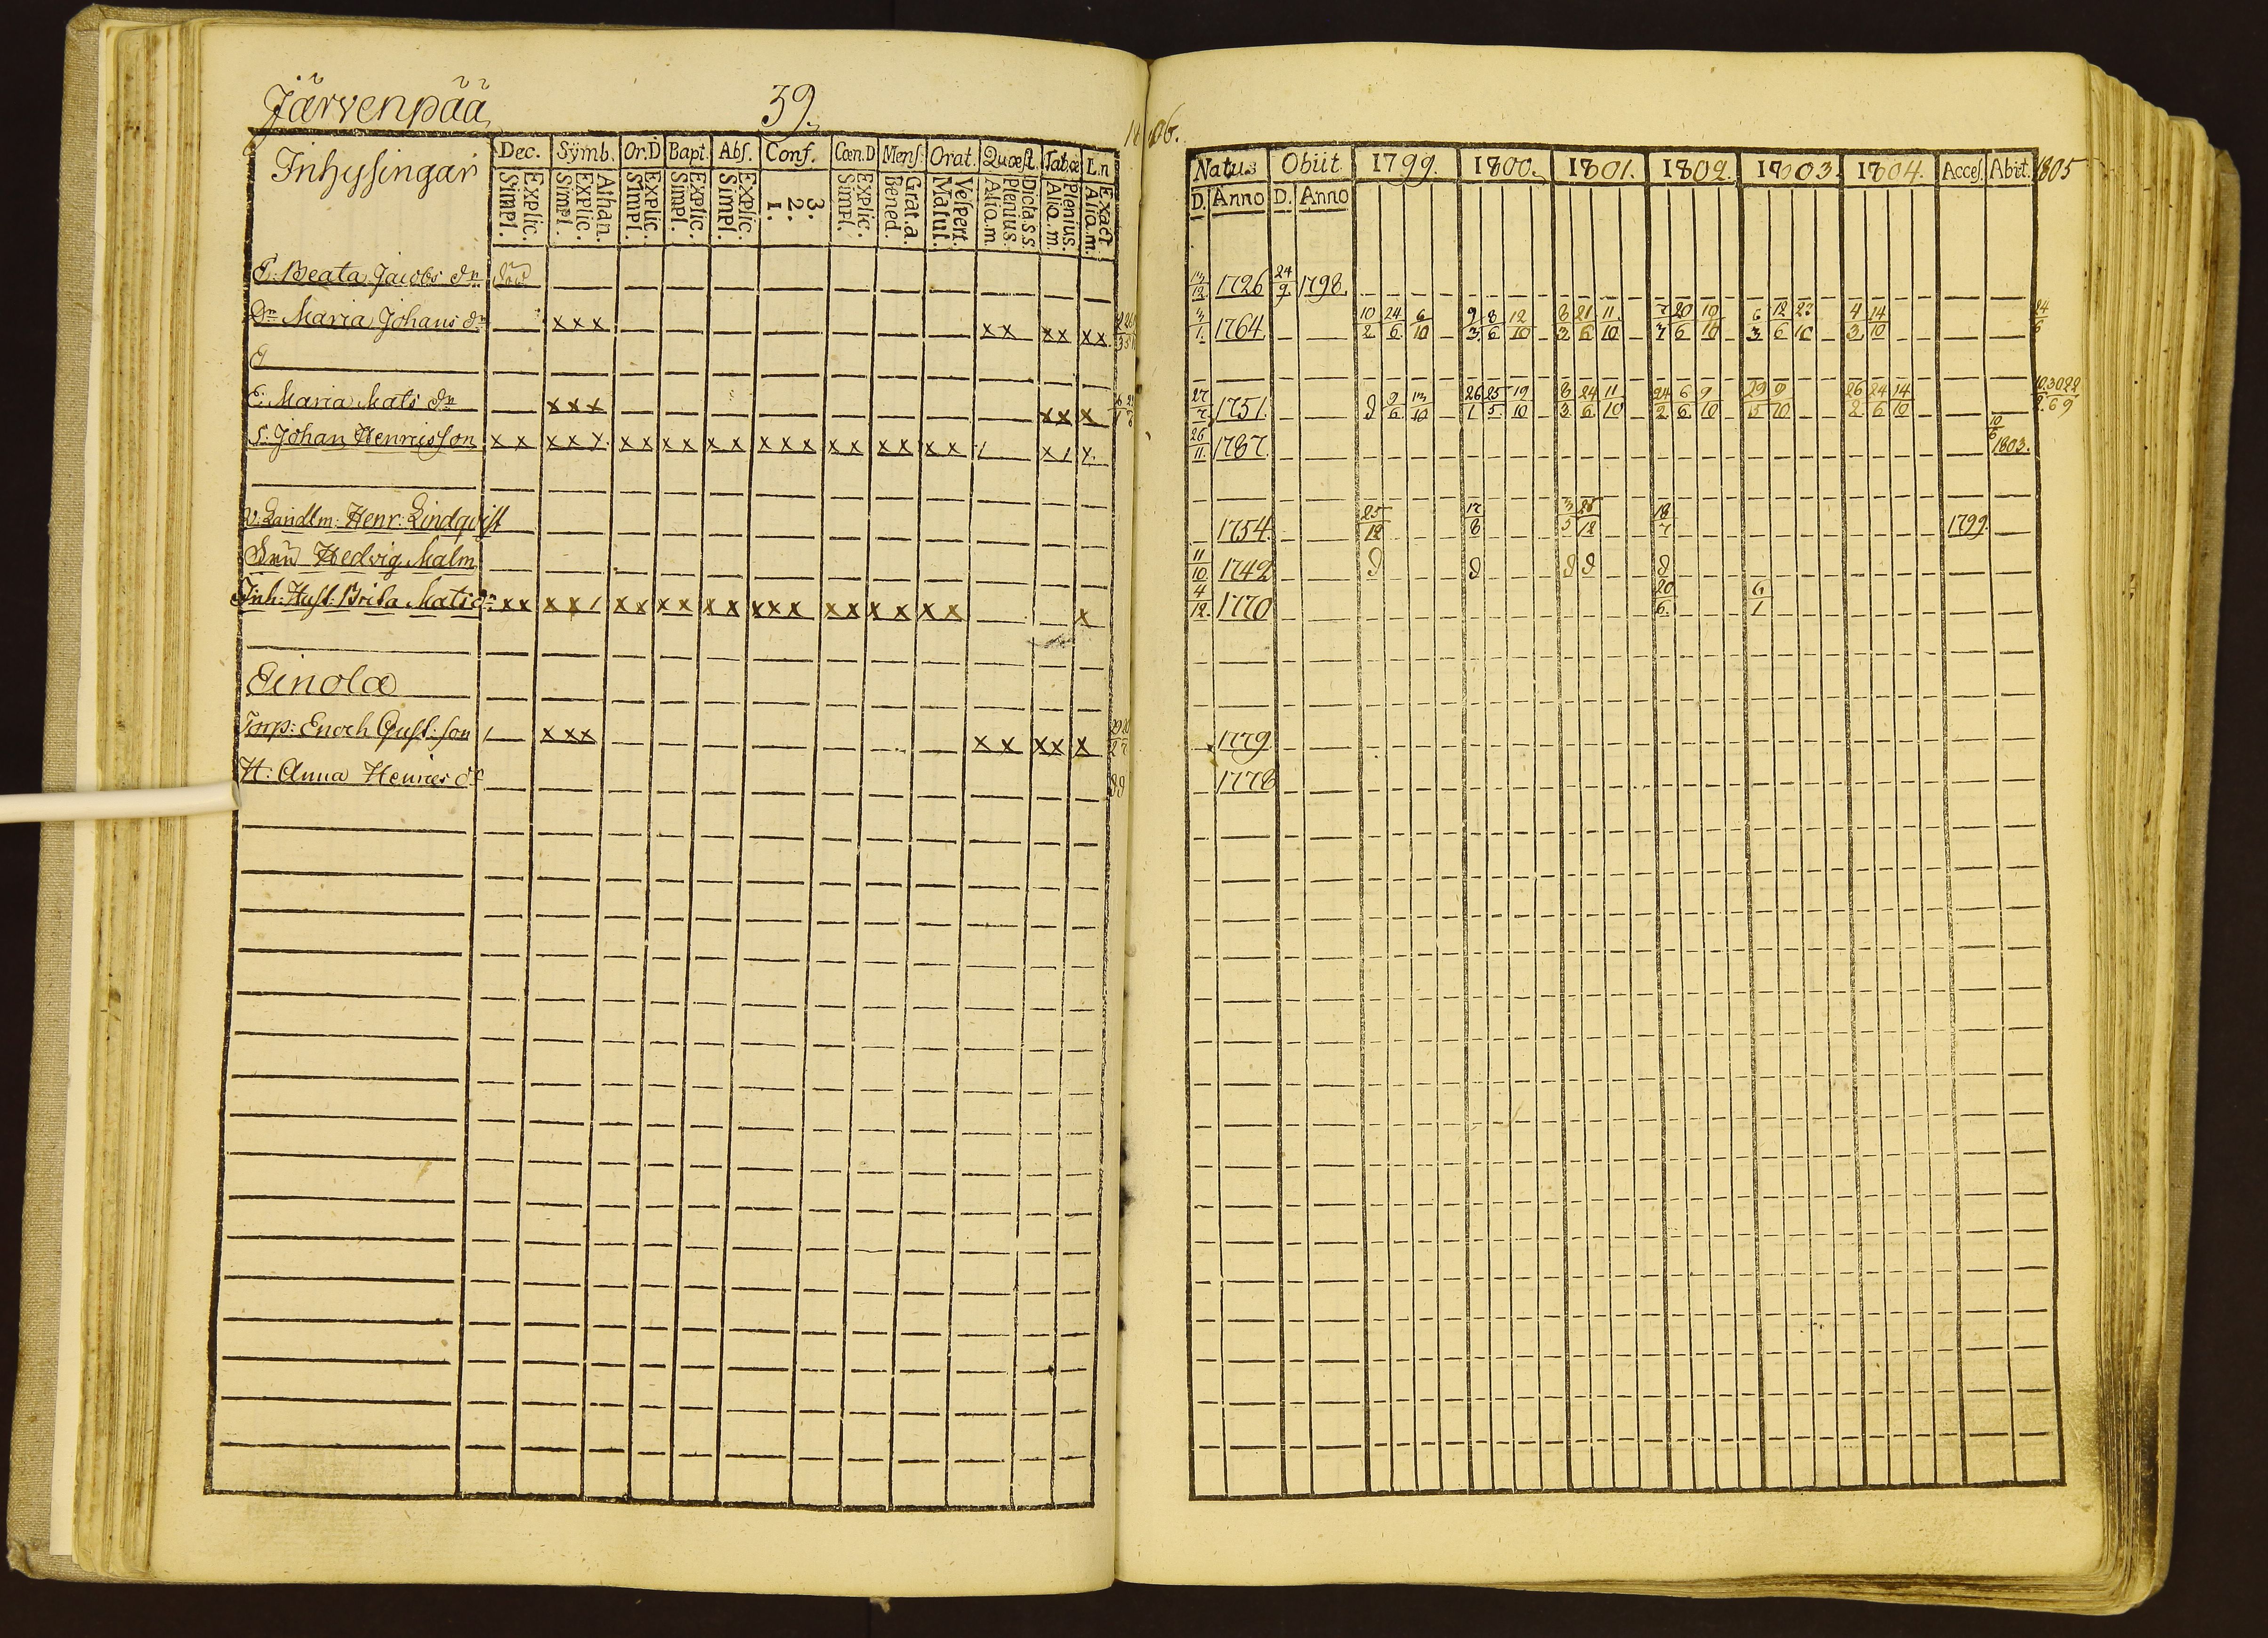 Järvenpää 39.
Inhysingar Dec. Symb. Or.D Bapt. Abs. Conf. Cœn.D Mens. Orat. Quœst. Tab.œ L.n
Simpl. Explic. Simpl. Explic. Athan. Simpl. Explic. Simpl. Explic. Simpl. Explic. 1. 2. 3. Simpl. Explic. Bened. Grat.a. Matut. Vespert. Alio.m. Plenius. Dicta.s.s. Alio.m. Plenius. Alio.m. Exact
E: Beata Jacobs dr död
Dr Maria Johans dr x x x x x x x x x
E: Maria Mats dr x x x x x x
S: Johan Henricsson x x x x x x x x x x x x x x x x x x x x
V: Landtm: Henr: Lindqvist
Hedvig Malm
Inh: Hust: Brita Mats dr x x x x / x x x x x x x x x x x x x x x x
Einola
Torp: Enoch Gust: son / x x x x x x x x
H: Anna Henrics dr
Natus Obiit 1799. 1800. 1801. 1802. 1803. 1804. Acces. Abiit. 1805
D. Anno D. Anno
13/12 1726 24/9 1798
3/1 1764 10/2 24/6 6/10 9/3 8/6 12/10 8/3 21/6 11/10 7/3 20/6 10/10 6/3 12/6 23/10 4/3 14/10 24/6
27/7 1751 9/6 13/10 26/1 25/5 19/10 8/3 24/6 11/10 24/2 6/6 9/10 29/5 9/10 26/2 24/6 14/10
26/11 1787 10/6 1803.
1754 25/12 17/8 3/5 28/12 18/7 1799.
11/10 1742
4/12 1770 20/6 6/1
1779
1778